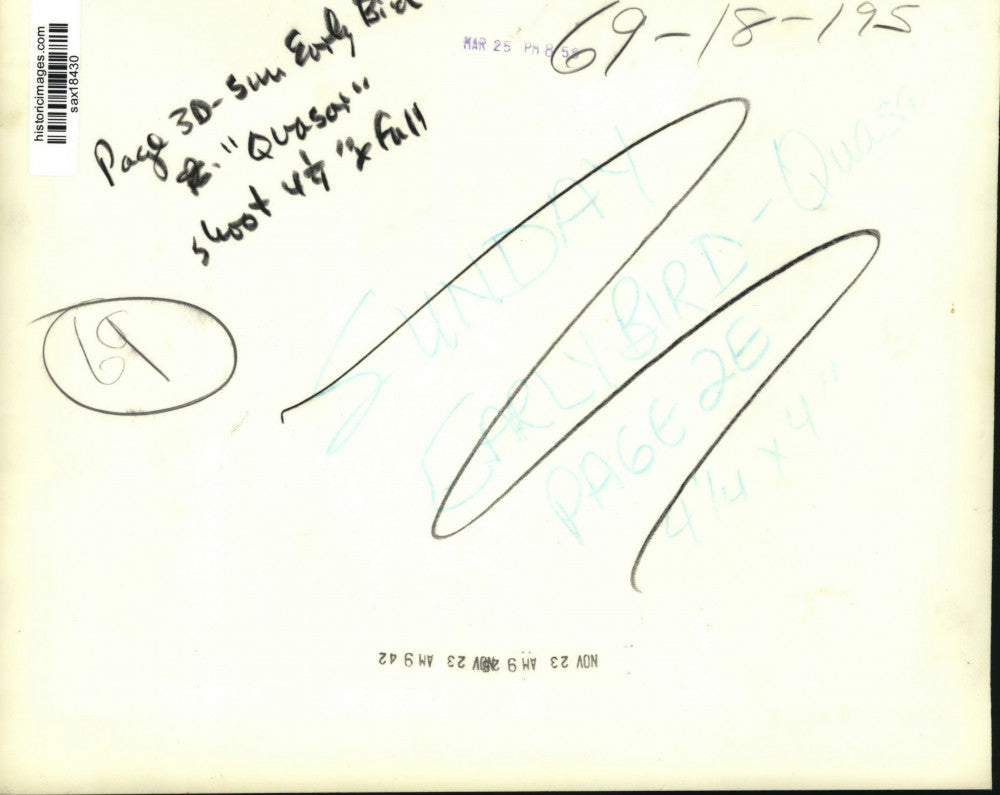 historicimages.com
sax18430
Page 3D - Sun Early Bird
"Quasar"
shoot 4 1/4 " x Full
MAR 25 PM 8 5
69-18-195
SUNDAY
EARLY BIRD - Quasar
PAGE 2E
4 1/4 x 4"
69
NOV 23 AM 9 NOV 23 AM 9 42